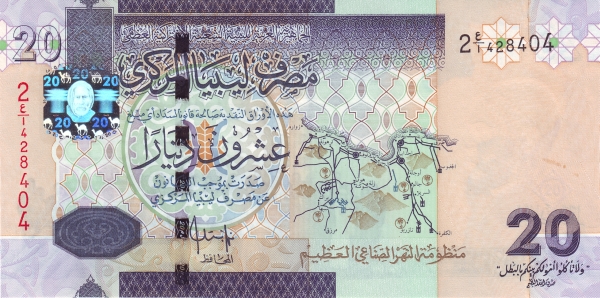 20
الجماهيرية العربية الليبية الشعبية الاشتراكية العظمى
2 ٤/١ 428404
مصرف ليبيا المركزي
20 20 20
20 20
2 ٤/١ 428404
هذه الأوراق النقدية صالحة قانونا لسداد أي مبلغ
عشرون دينارا
صدرت بموجب القانون
عن مصرف ليبيا المركزي
المحافظ
منظومة النهر الصناعي العظيم
20
"ولا تأكلوا أموالكم بينكم بالبطل"